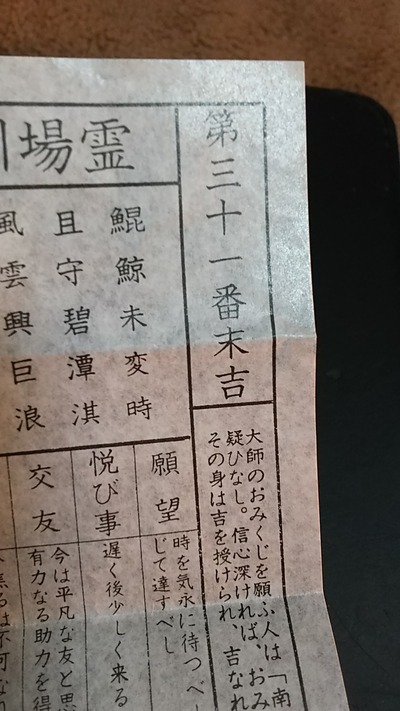 第三十一番末吉
大師のおみくじを願ふ人は「南
疑ひなし。信心深ければ、おみ
その身は吉を授けられ、吉なれ
霊場
鯤鯨未変時
且守碧潭淇
風雲興巨浪
願望
時を気永に待つべ
じて達すべし
悦び事
遅く後少しく来る
交友
今は平凡な友と思
有力なる助力を得